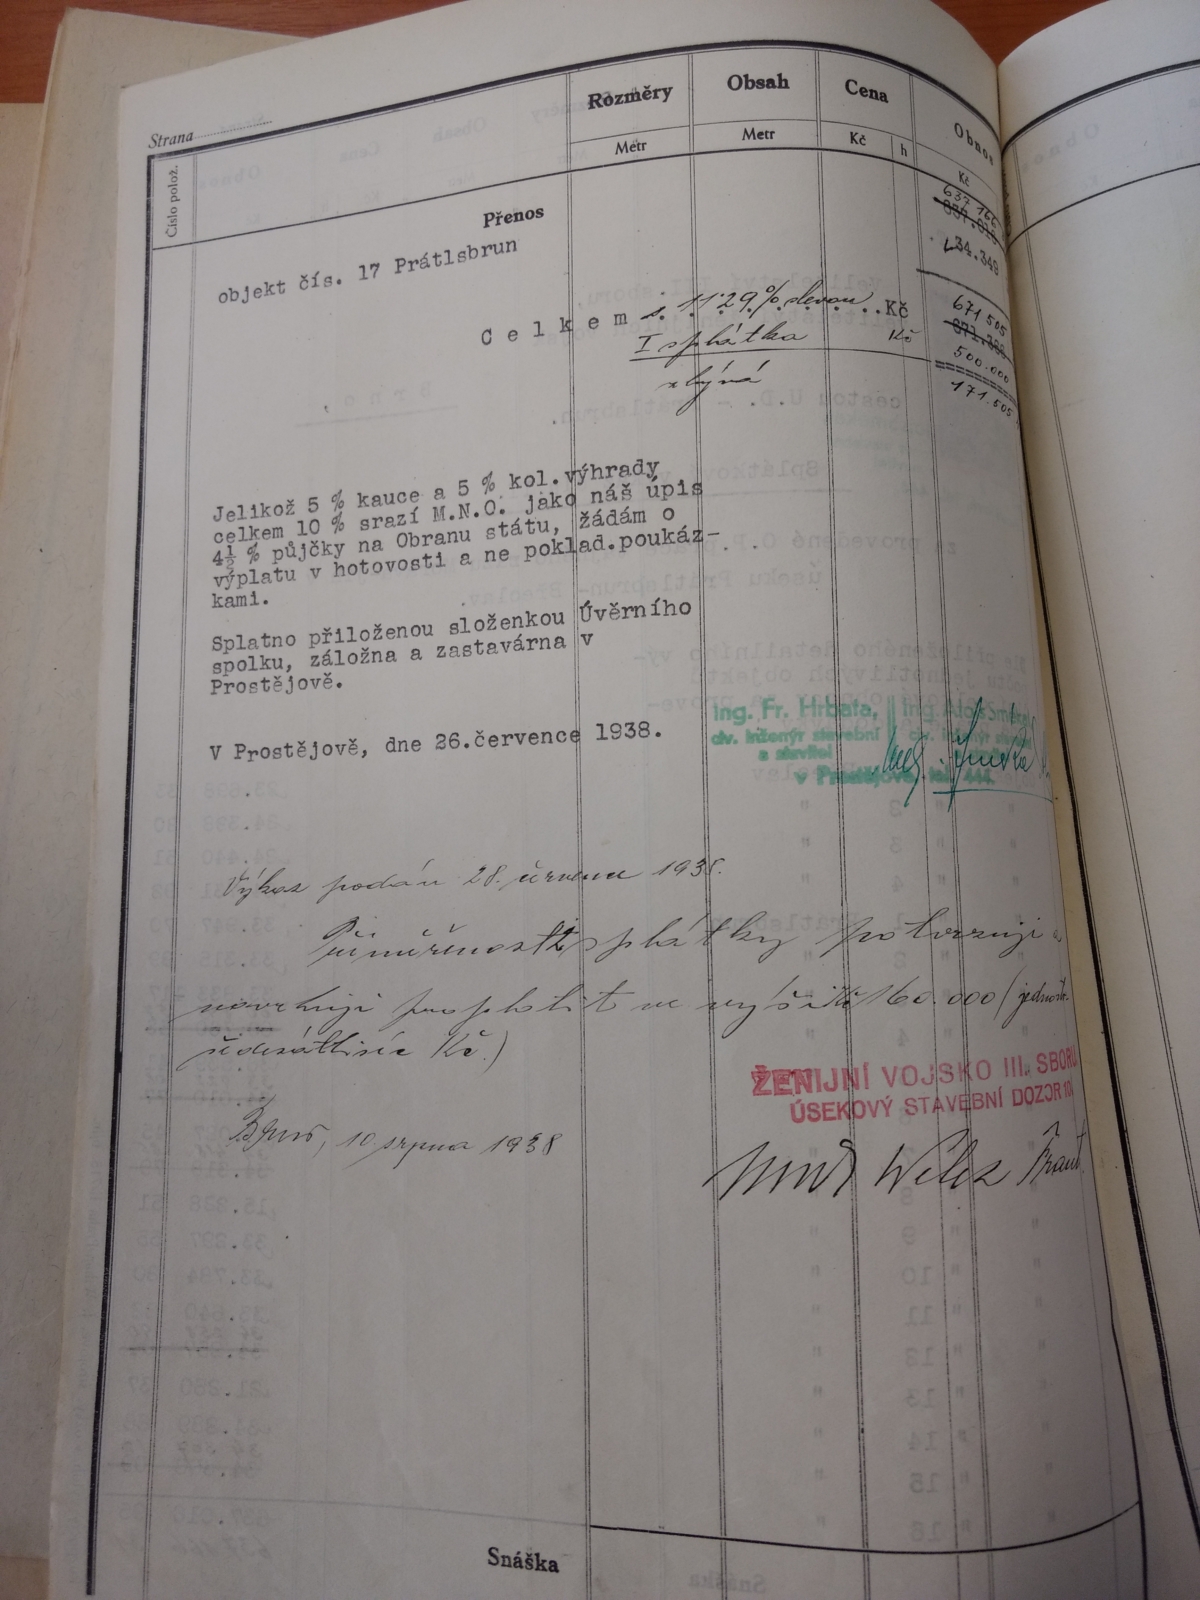 Strana
Číslo polož.
Rozměry
Obsah
Cena
Obnos
Metr
Metr
Kč
h
Kč
Přenos
637 166
objekt čís. 17 Prátlsbrun
34.349
C e l k e m s 11'29% slevou ..Kč
671 505
I splátka Kč
500.000
zbývá
171.505
Jelikož 5 % kauce a 5 % kol.výhrady
celkem 10 % srazí M.N.O. jako náš úpis
4½ % půjčky na Obranu státu, žádám o
výplatu v hotovosti a ne poklad.poukáz-
kami.
Splatno přiloženou složenkou Úvěrního
spolku, záložna a zastavárna v
Prostějově.
V Prostějově, dne 26.července 1938.
Ing. Fr. Hrbata,
civ. inženýr stavební
a stavitel
v Prostějově, tel. 444.
Výkaz podán 28. července 1938.
Přiměřenost splátky potvrzuji a
navrhuji proplatit ve výši Kč 160.000 (jednosto-
šedesáttisíc Kč.)
ŽENIJNÍ VOJSKO III. SBORU
ÚSEKOVÝ STAVEBNÍ DOZOR 10
Brno, 10. srpna 1938
Snáška